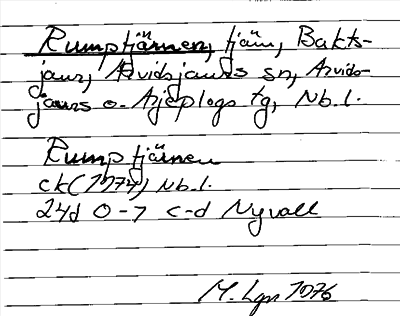 Rumptjärnen, tjärn, Bakts-
jaur, Arvidsjaurs sn, Arvids-
jaurs o. Arjeplogs tg, Nb. l.
Rumptjärnen
ek (1974) Nb. l.
24d 0-7 c-d Nyvall
M. Lgn 1976